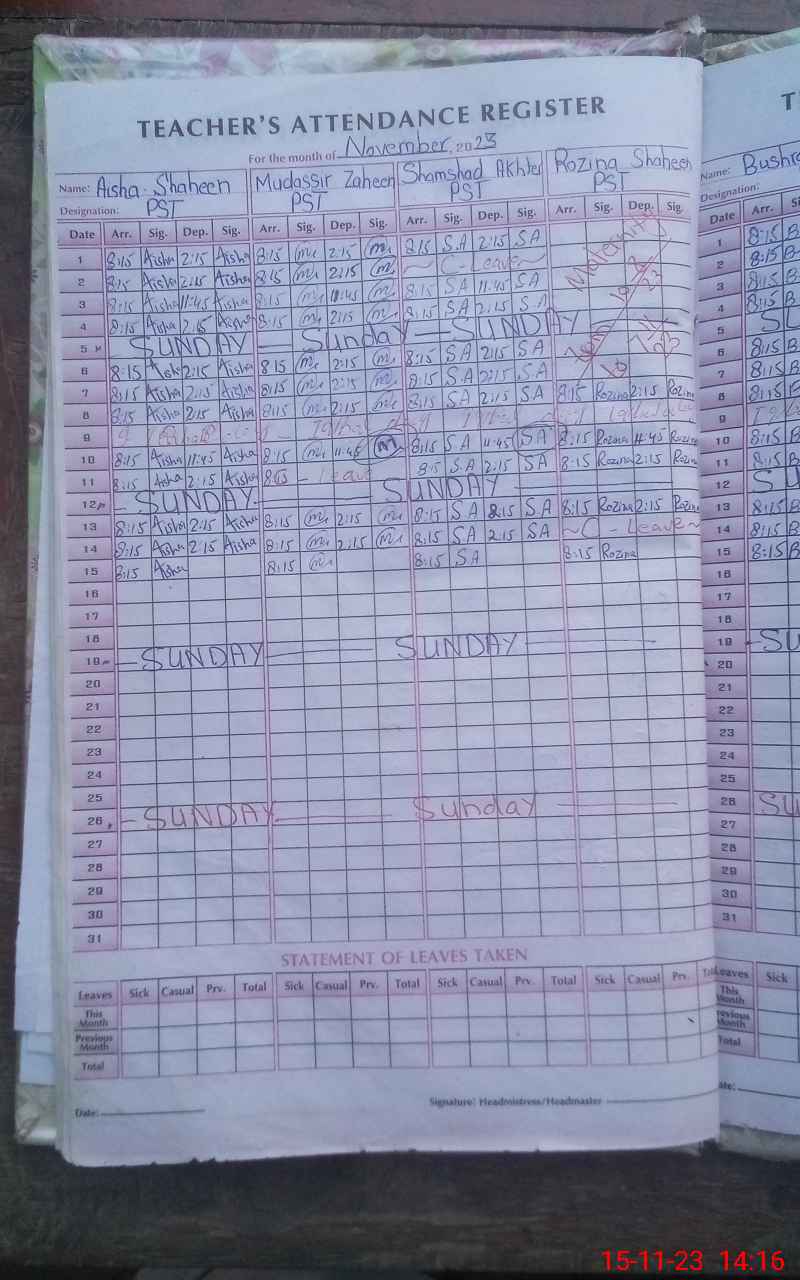 TEACHER'S ATTENDANCE REGISTER
For the month of November, 2023
Name: Aisha Shaheen Mudassir Zaheen Shamshad Akhter Rozina Shaheen
Designation: PST PST PST PST
Date Arr. Sig. Dep. Sig. Arr. Sig. Dep. Sig. Arr. Sig. Dep. Sig. Arr. Sig. Dep. Sig.
Maternity
1 8:15 Aisha 2:15 Aisha 8:15 2:15 8:15 SA 2:15 SA
2 8:15 Aisha 2:15 Aisha 8:15 2:15 C-Leave
3 8:15 Aisha 11:45 Aisha 8:15 11:45 8:15 SA 11:45 SA
4 8:15 Aisha 2:15 Aisha 8:15 2:15 8:15 SA 2:15 SA
5 SUNDAY Sunday SUNDAY
6 8:15 Aisha 2:15 Aisha 8:15 2:15 8:15 SA 2:15 SA
7 8:15 Aisha 2:15 Aisha 8:15 2:15 8:15 SA 2:15 SA
8 8:15 Aisha 2:15 Aisha 8:15 2:15 8:15 SA 2:15 SA 8:15 Rozina 2:15 Rozina
9
10 8:15 Aisha 11:45 Aisha 8:15 11:45 8:15 SA 11:45 SA 8:15 Rozina 11:45 Rozina
11 8:15 Aisha 2:15 Aisha Leave 8:15 SA 2:15 SA 8:15 Rozina 2:15 Rozina
12 SUNDAY SUNDAY
13 8:15 Aisha 2:15 Aisha 8:15 2:15 8:15 SA 2:15 SA 8:15 Rozina 2:15 Rozina
14 8:15 Aisha 2:15 Aisha 8:15 2:15 8:15 SA 2:15 SA C-Leave
15 8:15 Aisha 8:15 8:15 SA 8:15 Rozina
16
17
18
19 SUNDAY SUNDAY
20
21
22
23
24
25
26 SUNDAY Sunday
27
28
29
30
31
STATEMENT OF LEAVES TAKEN
Leaves Sick Casual Prv. Total Sick Casual Prv. Total Sick Casual Prv. Total Sick Casual Prv.
This Month
Previous Month
Total
Date: Signature: Headmistress/Headmaster
Name: Bushra
Designation:
Date Arr.
1 8:15 B
2 8:15 B
3 8:15 B
4 8:15 B
5 SU
6 8:15 B
7 8:15 B
8 8:15
9
10 8:15 B
11 8:15 B
12 SU
13 8:15 B
14 8:15 B
15 8:15 B
16
17
18
19 SU
20
21
22
23
24
25
26 SU
27
28
29
30
31
Leaves Sick
This Month
Previous Month
Total
Date:
15-11-23 14:16